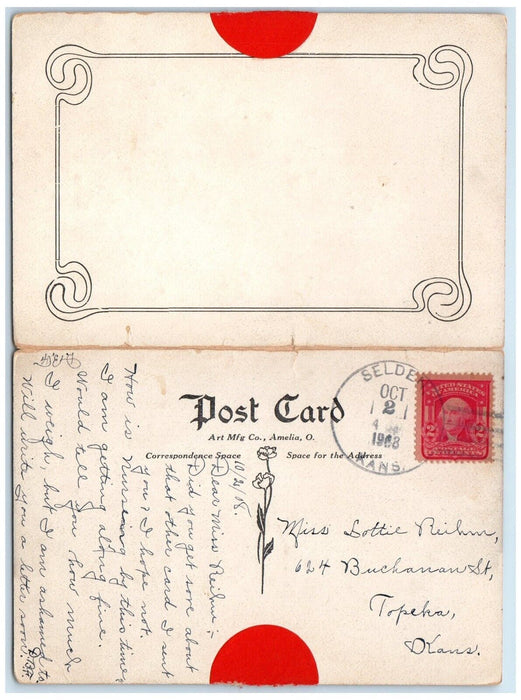 Post Card
Art Mfg Co., Amelia, O.
Correspondence Space
Space for the Address
SELDEN
OCT
2
1908
KANS.
UNITED STATES
2 2
POSTAGE
TWO CENTS
10/2/8.
Dear Miss Reihm:-
Did you get sore about
that other card I sent
you? I hope not.
How is Nursing by this time?
I am getting along fine.
Would tell you how much
I weigh, but I am ashamed to
Will write you a letter soon.
Miss Lottie Reihm,
624 Buchanan St,
Topeka,
Kans.